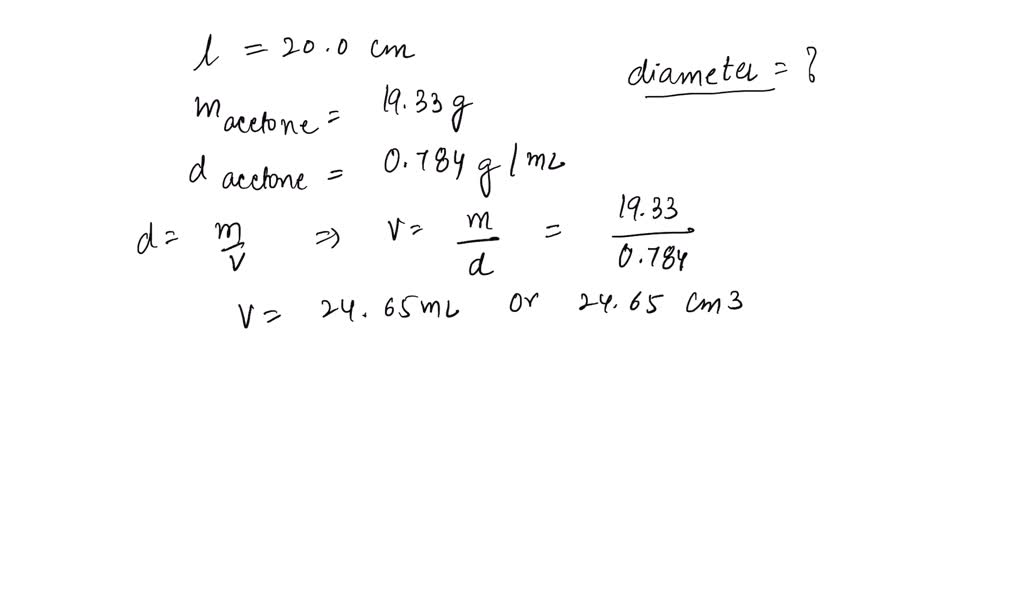 l = 20.0 cm
diameter = ?
m acetone = 19.33 g
d acetone = 0.784 g/mL
d = m/v ⇒ v = m/d = 19.33/0.784
v = 24.65 mL or 24.65 cm3